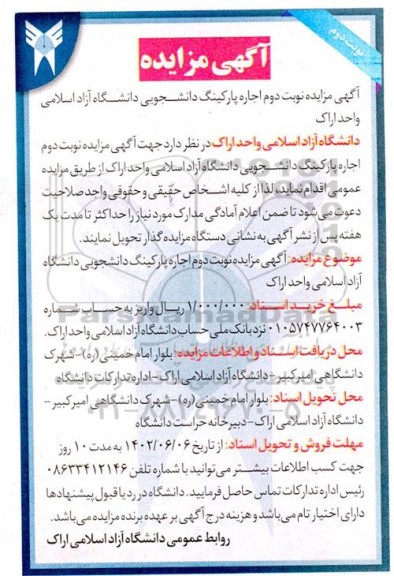 نوبت دوم
آگهی مزایده
آگهی مزایده نوبت دوم اجاره پارکینگ دانشجویی دانشگاه آزاد اسلامی
واحد اراک
دانشگاه آزاد اسلامی واحد اراک در نظر دارد جهت آگهی مزایده نوبت دوم
اجاره پارکینگ دانشجویی دانشگاه آزاد اسلامی واحد اراک از طریق مزایده
عمومی اقدام نماید، لذا از کلیه اشخاص حقیقی و حقوقی واجد صلاحیت
دعوت می شود تا ضمن اعلام آمادگی مدارک مورد نیاز را حداکثر تا مدت یک
هفته پس از نشر آگهی به نشانی دستگاه مزایده گذار تحویل نمایند.
موضوع مزایده: آگهی مزایده نوبت دوم اجاره پارکینگ دانشجویی دانشگاه
آزاد اسلامی واحد اراک
مبلغ خرید اسناد: ۱/۰۰۰/۰۰۰ ریال واریز به حساب شماره
۰۱۰۵۷۴۷۷۶۴۰۰۳ نزد بانک ملی حساب دانشگاه آزاد اسلامی واحد اراک.
محل دریافت اسناد و اطلاعات مزایده: بلوار امام خمینی (ره)- شهرک
دانشگاهی امیرکبیر- دانشگاه آزاد اسلامی اراک- اداره تدارکات دانشگاه
محل تحویل اسناد: بلوار امام خمینی (ره)- شهرک دانشگاهی امیرکبیر-
دانشگاه آزاد اسلامی اراک- دبیرخانه حراست دانشگاه
مهلت فروش و تحویل اسناد: از تاریخ ۱۴۰۲/۰۶/۰۶ به مدت ۱۰ روز
جهت کسب اطلاعات بیشتر می توانید با شماره تلفن ۰۸۶۳۳۴۱۲۱۴۶
رئیس اداره تدارکات تماس حاصل فرمایید. دانشگاه در رد یا قبول پیشنهادها
دارای اختیار تام می باشد و هزینه درج آگهی بر عهده برنده مزایده می باشد.
روابط عمومی دانشگاه آزاد اسلامی اراک